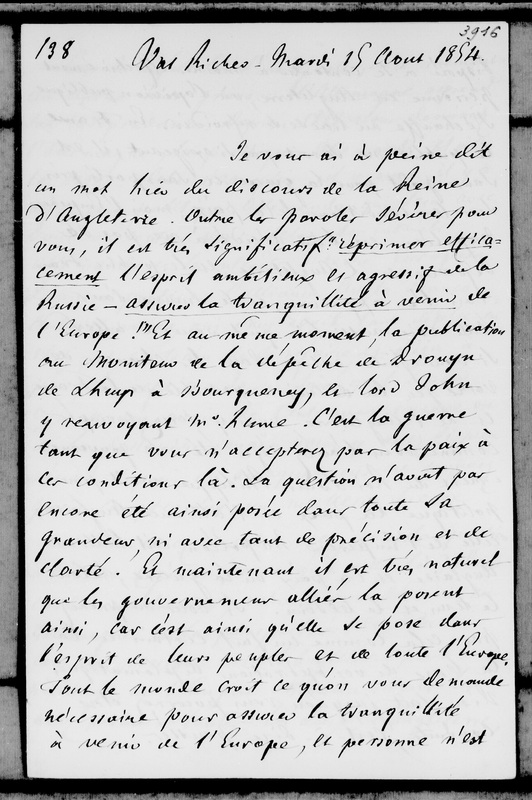 3916
138 Val Richer - Mardi 15 Aout 1854.
Je vous ai à peine dit
un mot hier du discours de la Reine
d'Angleterre. Outre les paroles sévères pour
vous, il est très significatif "réprimer effica-
cement l'esprit ambitieux et agressif de la
Russie - assurer la tranquillité à venir de
l'Europe !" Et au même moment, la publication
au Moniteur de la dépêche de Drouyn
de Lhuys à Bourqueney, et lord John
y renvoyant Mr. Hume. C'est la guerre
tant que vous n'accepterez pas la paix à
ces conditions là. La question n'avait pas
encore été ainsi posée dans toute sa
grandeur, ni avec tant de précision et de
clarté. Et maintenant il est très naturel
que les gouvernemens alliés la posent
ainsi, car c'est ainsi qu'elle se pose dans
l'esprit de leurs peuples et de toute l'Europe.
Tout le monde croit ce qu'on vous demande
nécessaire pour assurer la tranquillité
à venir de l'Europe, et personne n'est